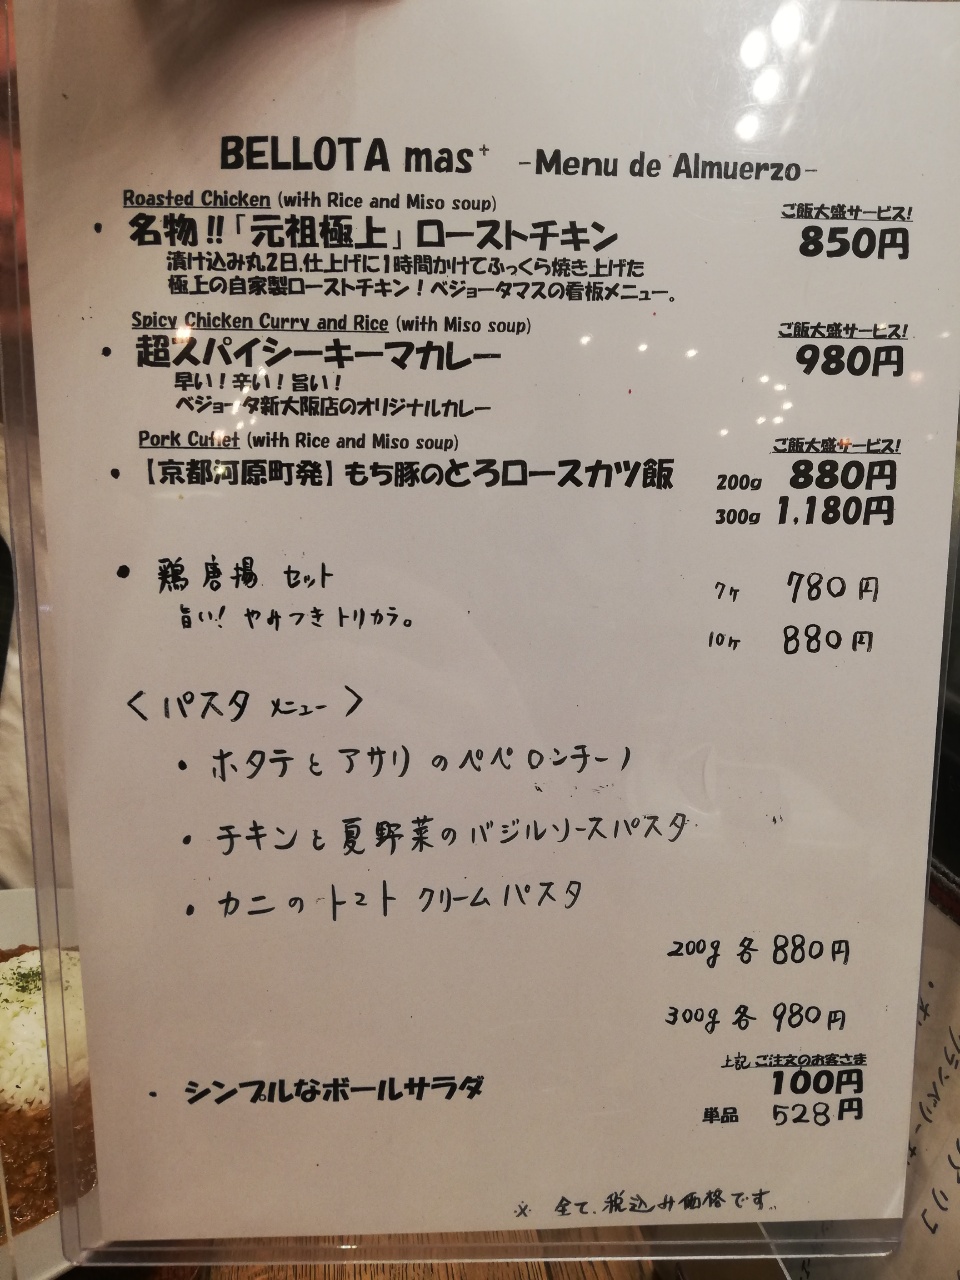 BELLOTA mas+ -Menu de Almuerzo-
Roasted Chicken (with Rice and Miso soup)
ご飯大盛サービス!
・名物!!「元祖極上」ローストチキン 850円
漬け込み丸2日、仕上げに1時間かけてふっくら焼き上げた
極上の自家製ローストチキン!ベジョータマスの看板メニュー。
Spicy Chicken Curry and Rice (with Miso soup)
ご飯大盛サービス!
・超スパイシーキーマカレー 980円
早い!辛い!旨い!
ベジョータ新大阪店のオリジナルカレー
Pork Cutlet (with Rice and Miso soup)
ご飯大盛サービス!
・【京都河原町発】もち豚のとろロースカツ飯 200g 880円
300g 1,180円
・鶏唐揚セット 7ヶ 780円
旨い!やみつきトリカラ。
10ヶ 880円
<パスタメニュー>
・ホタテとアサリのペペロンチーノ
・チキンと夏野菜のバジルソースパスタ
・カニのトマトクリームパスタ
200g 各 880円
300g 各 980円
上記ご注文のお客さま
・シンプルなボールサラダ 100円
単品 528円
※ 全て、税込み価格です。